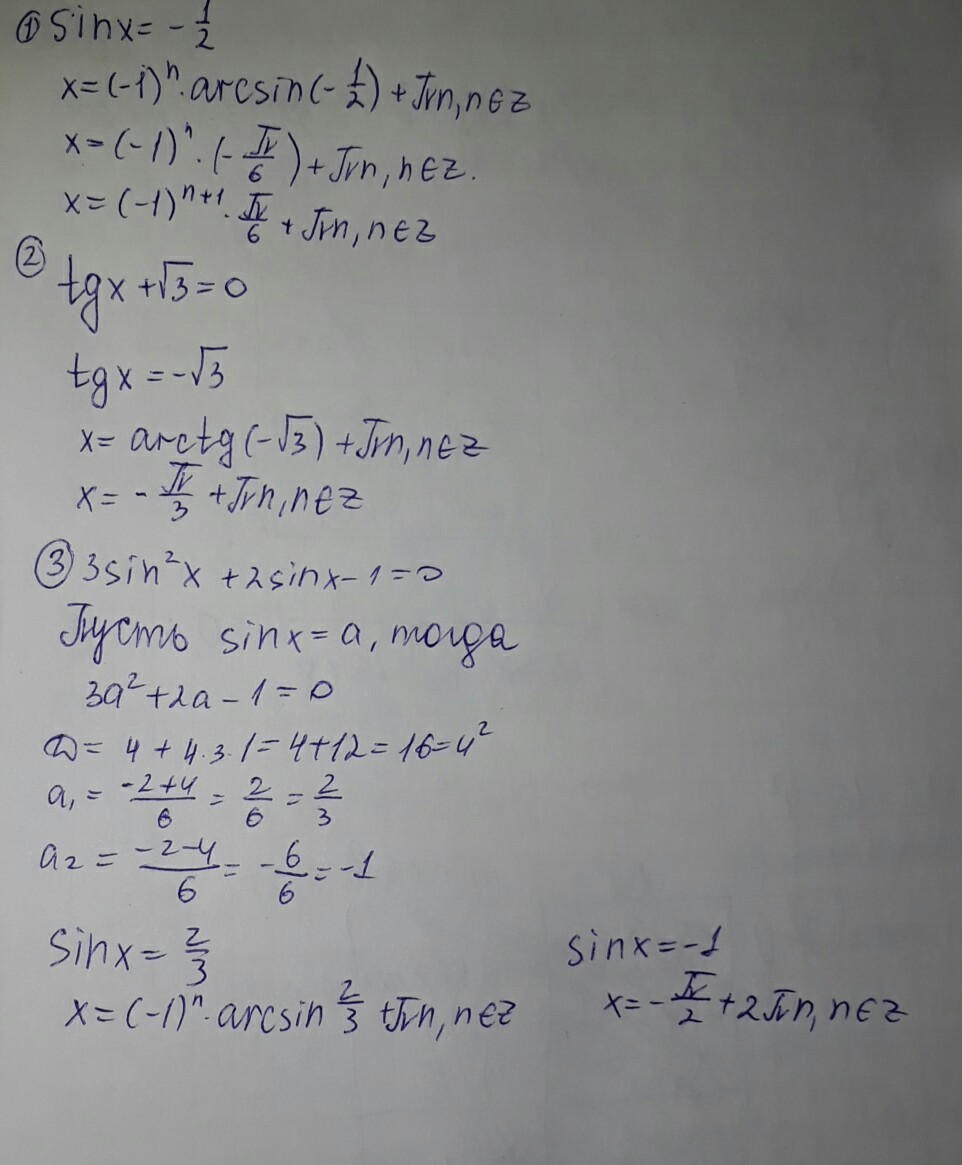 ① sinx = - 1/2
x = (-1)ⁿ · arcsin(- 1/2) + πn, n∈z
x = (-1)ⁿ · (- π/6) + πn, n∈z.
x = (-1)ⁿ⁺¹ · π/6 + πn, n∈z
② tgx + √3 = 0
tgx = -√3
x = arctg(-√3) + πn, n∈z
x = - π/3 + πn, n∈z
③ 3sin²x + 2sinx - 1 = 0
Пусть sinx = a, тогда
3a² + 2a - 1 = 0
D = 4 + 4·3·1 = 4+12 = 16 = 4²
a₁ = (-2+4)/6 = 2/6 = 2/3
a₂ = (-2-4)/6 = - 6/6 = -1
sinx = 2/3
x = (-1)ⁿ · arcsin 2/3 + πn, n∈z
sinx = -1
x = - π/2 + 2πn, n∈z